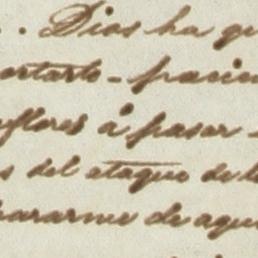 . . Dios ha qu
ortarto - pacien
flores á pasar -
s del ataque de l
pararme de aqu